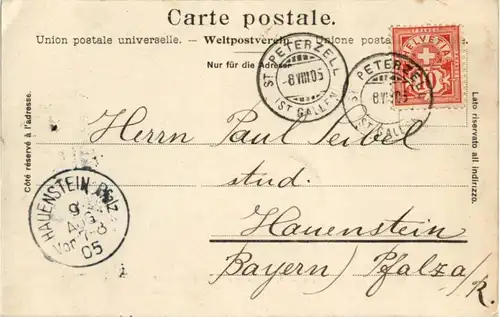 Carte postale.
Union postale universelle. – Weltpostverein. – Unione postale
Nur für die Adresse
HELVETIA
ST. PETERZELL
8.VIII.05
(ST. GALLEN)
ST. PETERZELL
8.VIII.05
(ST. GALLEN)
Côté réservé à l'adresse.
Lato riservato all indirizzo.
Herrn Paul Seibel
stud.
Hauenstein
Bayern) Pfalz a/R.
HAUENSTEIN Pfalz
9
AUG
Vor. 7-8
05